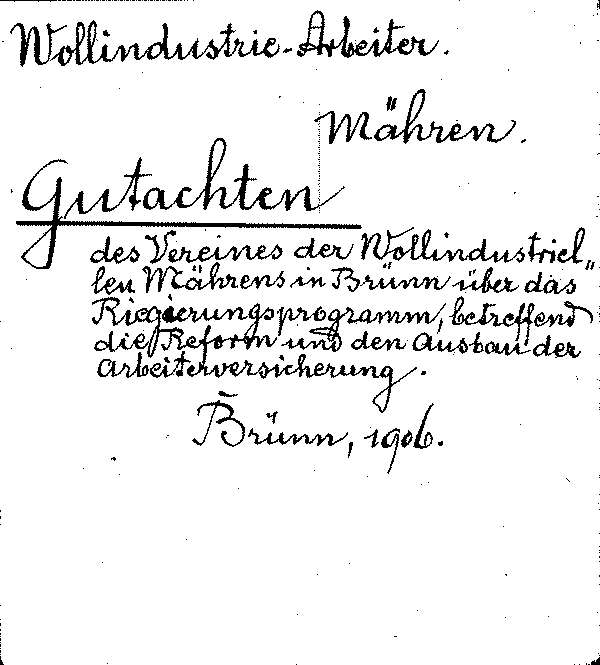 Wollindustrie-Arbeiter.
Mähren.
Gutachten
des Vereines der Wollindustriel„
len Mährens in Brünn über das
Riegierungsprogramm, betreffend
die Reform und den Ausbau der
Arbeiterversicherung.
Brünn, 1906.